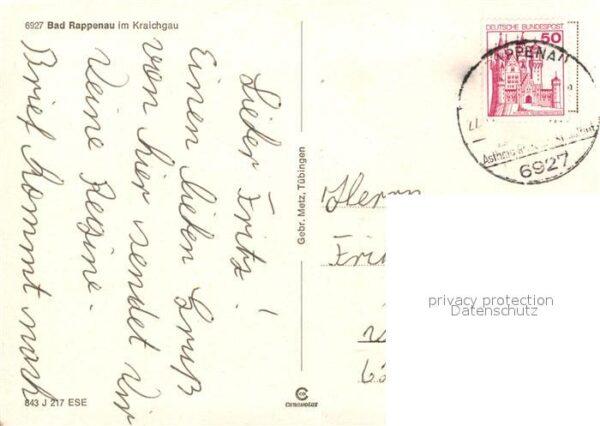 6927 Bad Rappenau im Kraichgau
Lieber Fritz!
Einen lieben Gruß
von hier sendet Dir
Deine Regine.
Brief kommt nach
843 J 217 ESE
Gebr. Metz, Tübingen
cramolor
DEUTSCHE BUNDESPOST
50
RAPPENAU
6927
Herrn
privacy protection
Datenschutz